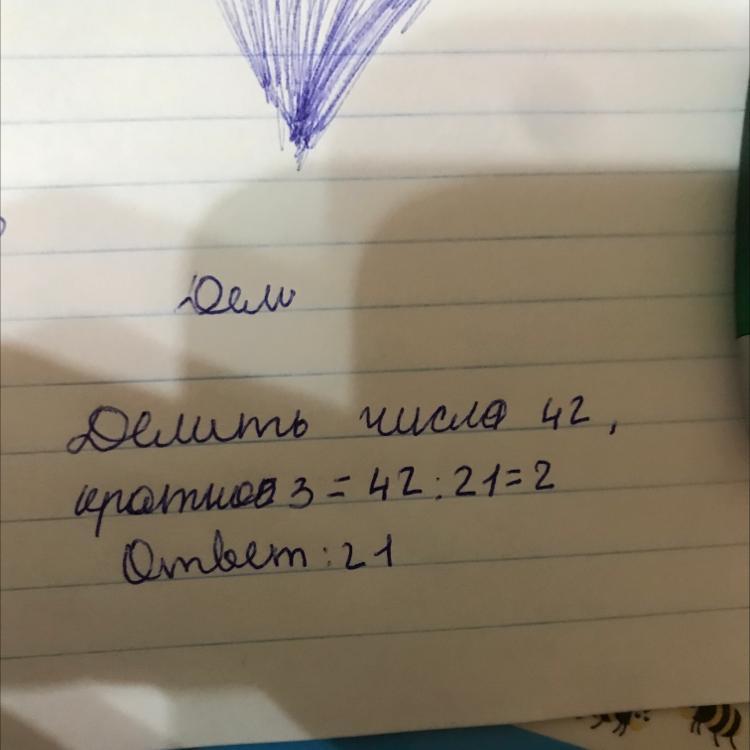 Дели
Делить число 42,
кратное 3 = 42 : 21 = 2
Ответ : 21